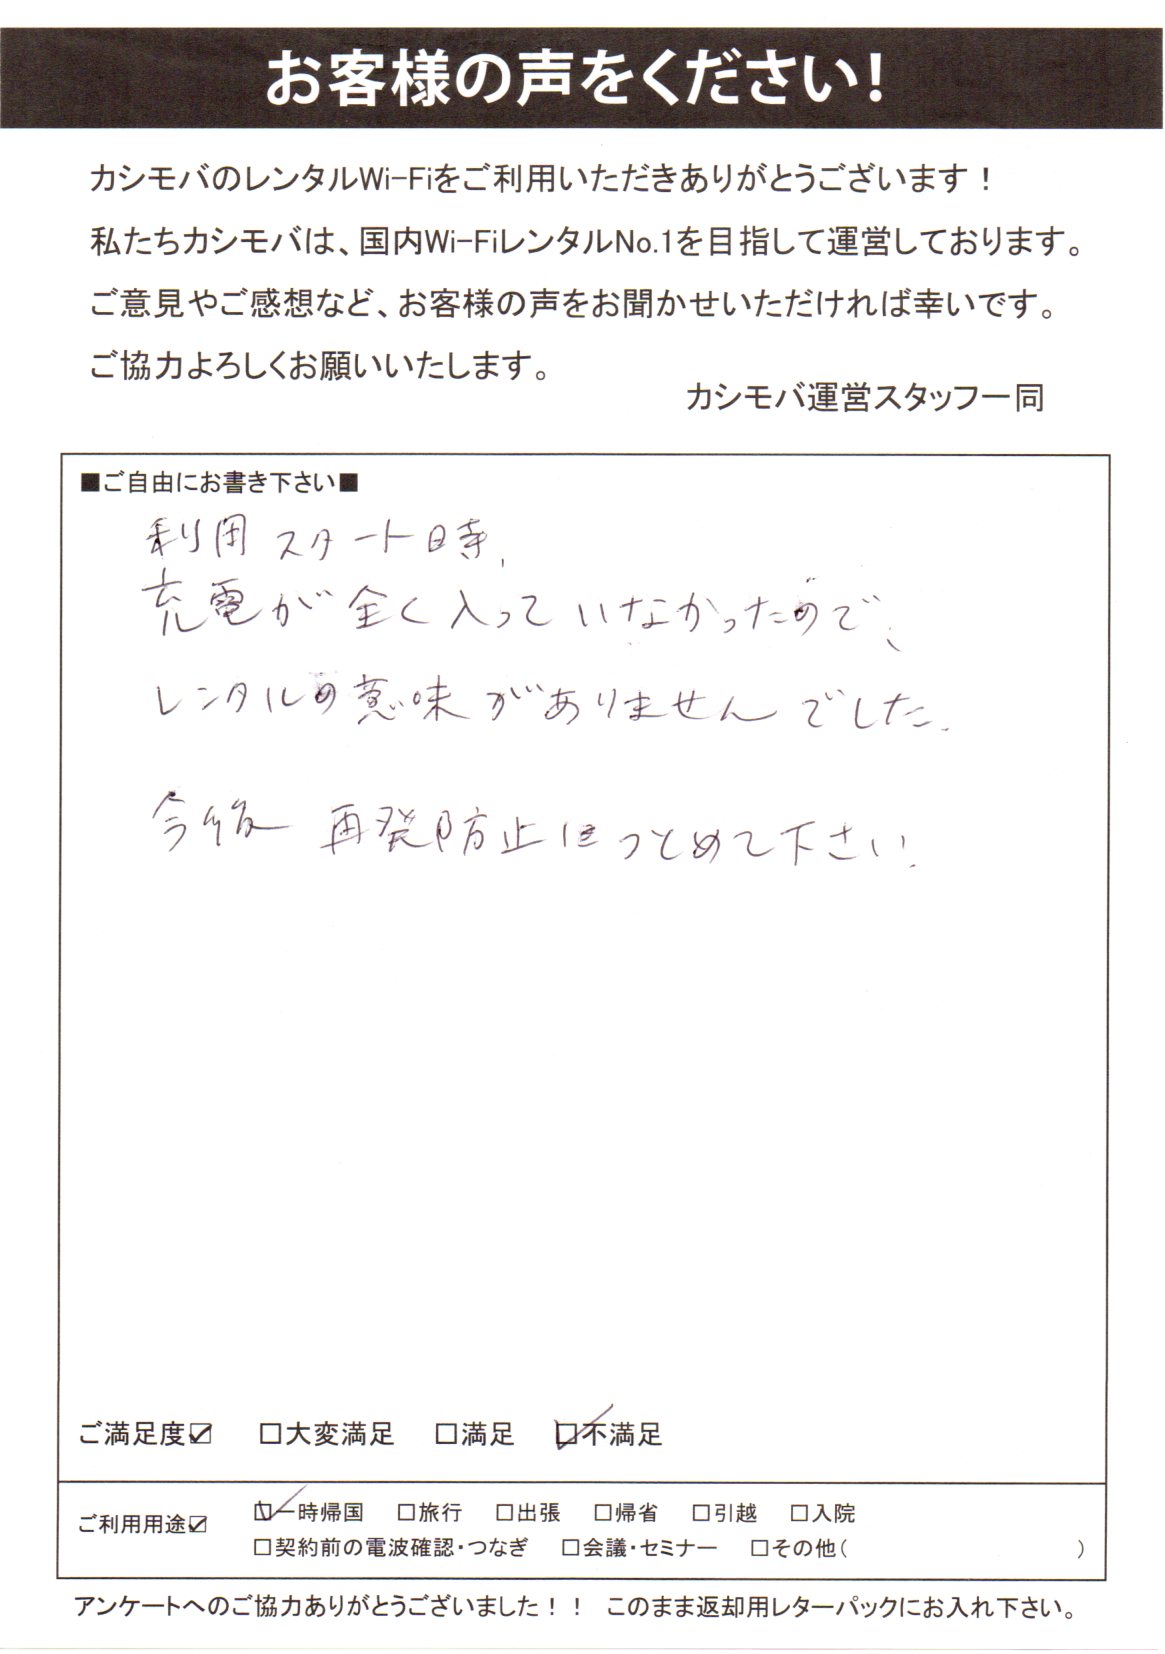 お客様の声をください!
カシモバのレンタルWi-Fiをご利用いただきありがとうございます！
私たちカシモバは、国内Wi-FiレンタルNo.1を目指して運営しております。
ご意見やご感想など、お客様の声をお聞かせいただければ幸いです。
ご協力よろしくお願いいたします。
カシモバ運営スタッフ一同
■ご自由にお書き下さい■
利用スタート時、
充電が全く入っていなかったので、
レンタルの意味がありませんでした。
今後 再発防止につとめて下さい。
ご満足度☑ □大変満足 □満足 ☑不満足
ご利用用途☑ ☑一時帰国 □旅行 □出張 □帰省 □引越 □入院
□契約前の電波確認・つなぎ □会議・セミナー □その他( )
アンケートへのご協力ありがとうございました！！ このまま返却用レターパックにお入れ下さい。